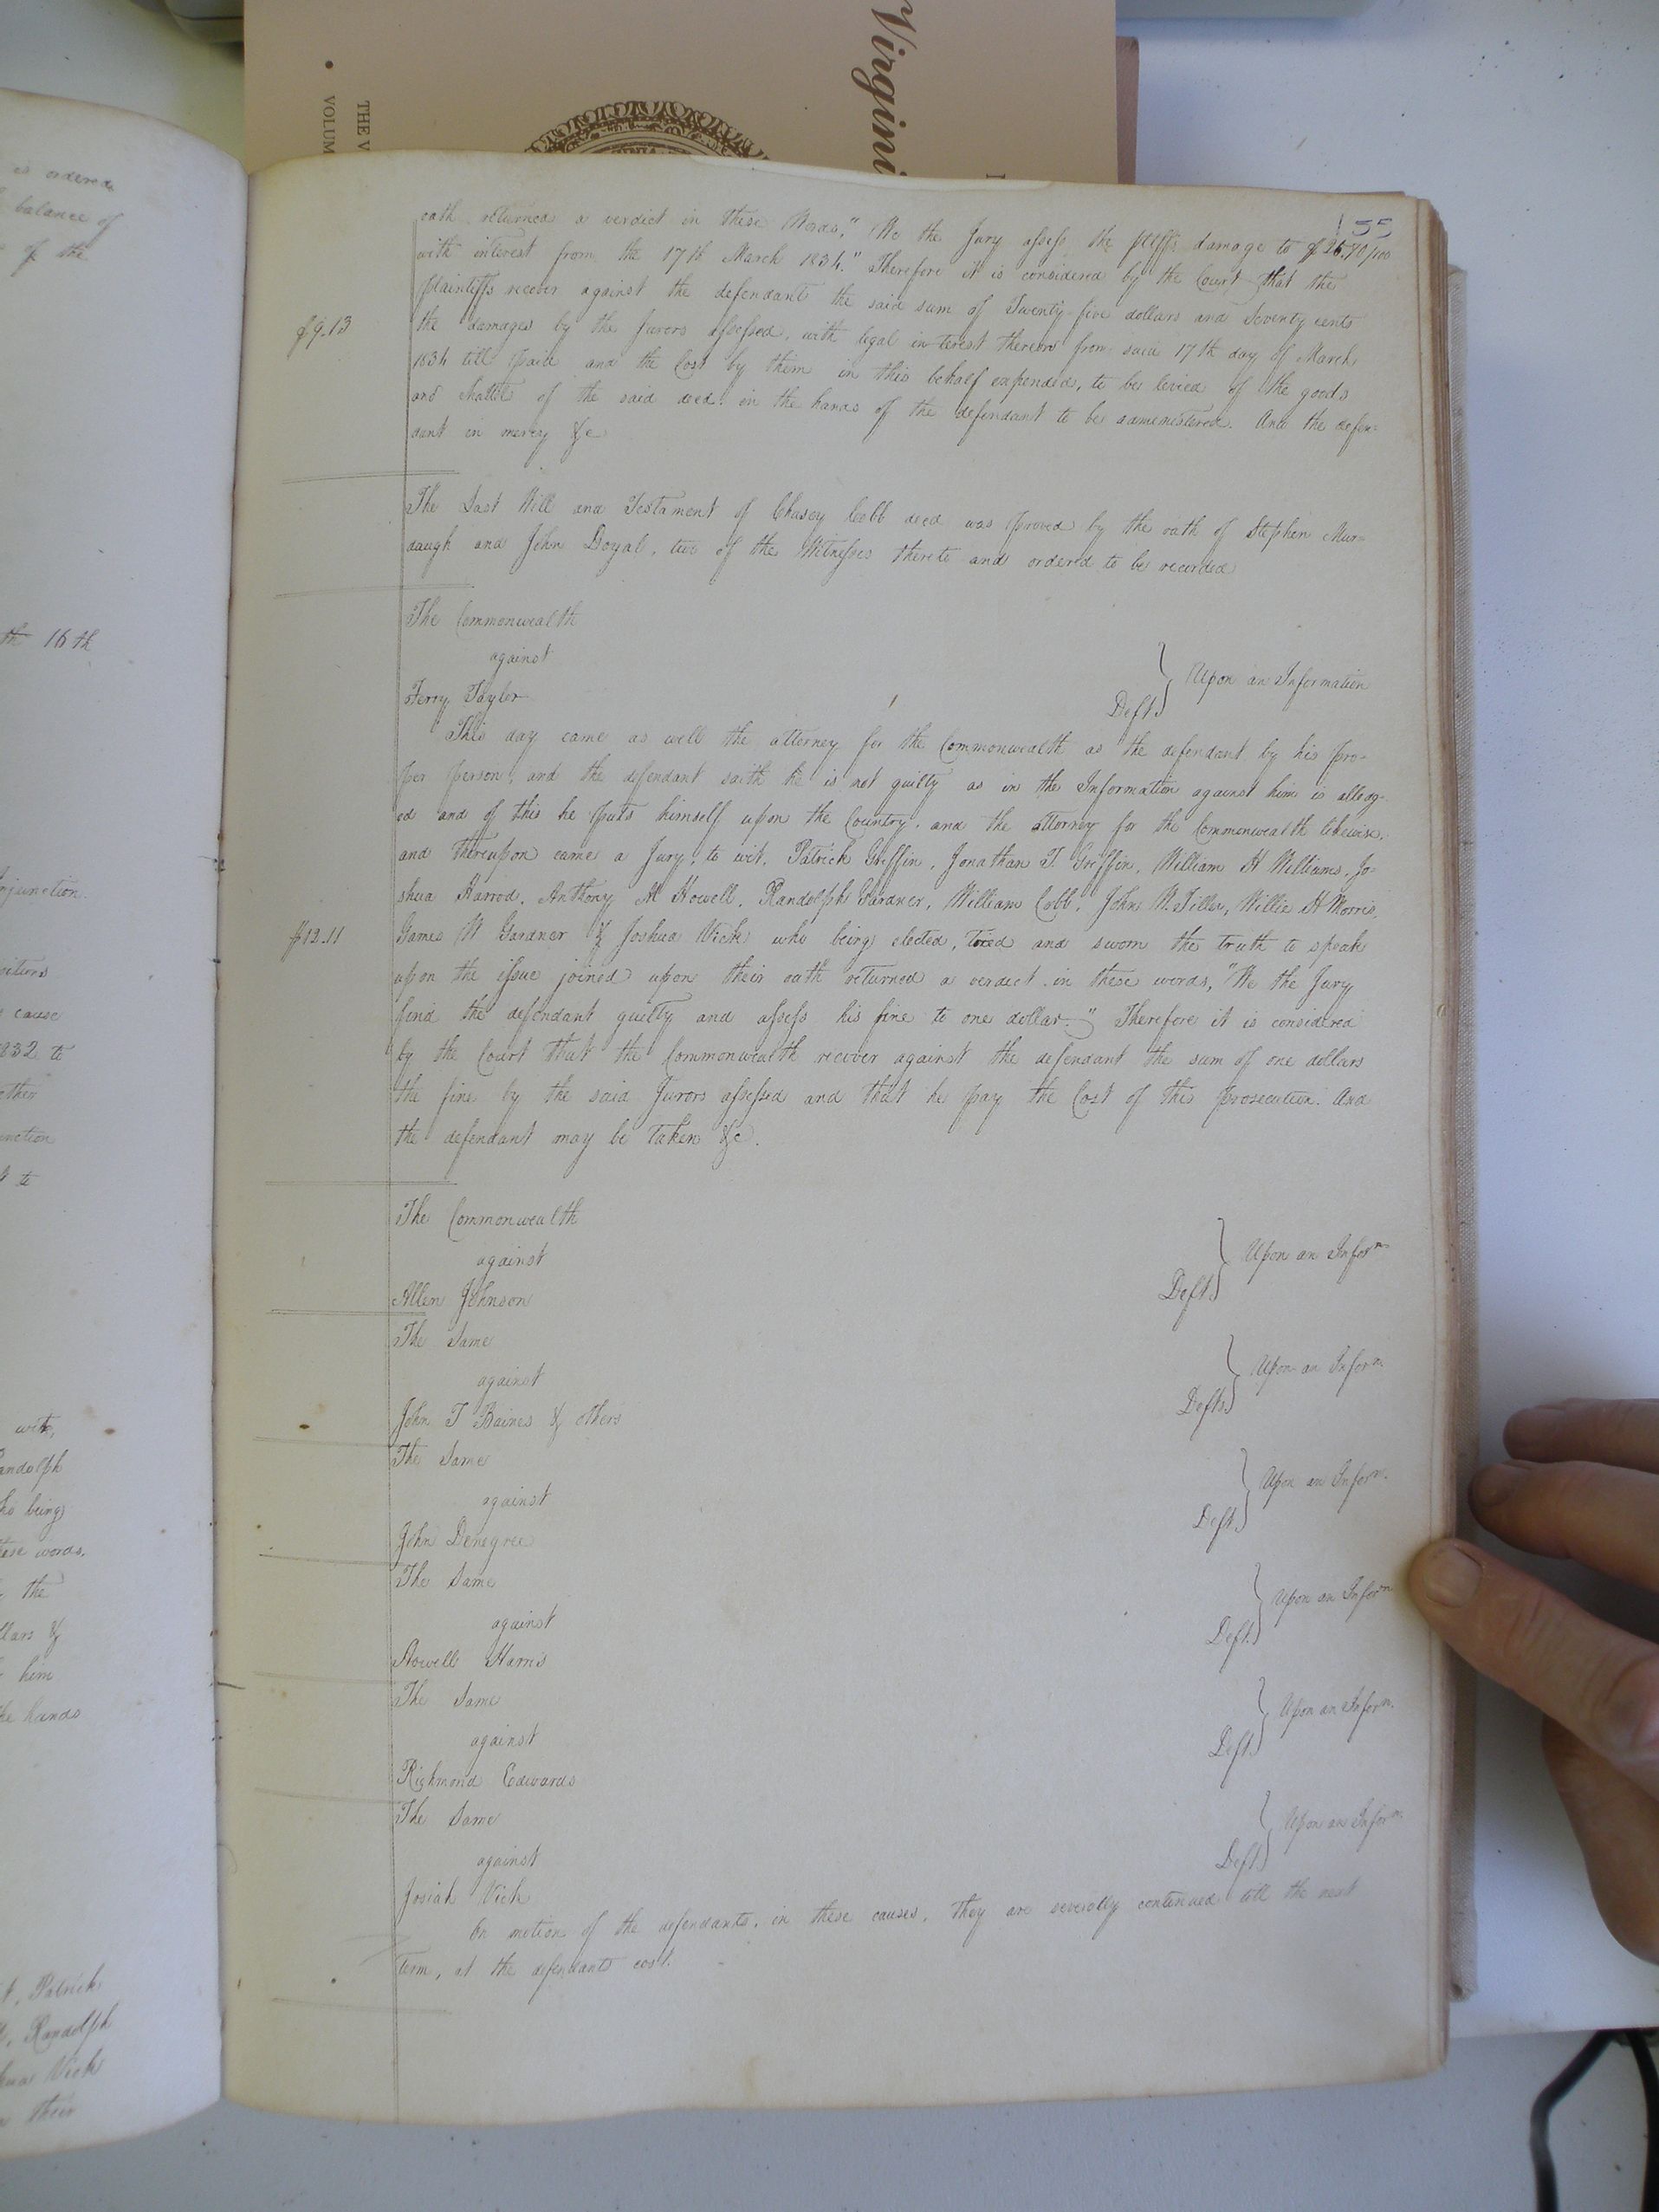 Virgini
THE V
VOLUM
is ordered
balance of
of the
th 16th
njunction.
cause
1832 to
other
unction
to
wit,
andolph
ho being
these words,
the
llars &
him
the hands
t, Patrick
Randolph
hua Vick
n their
55
oath returned a verdict in these Words, "We the Jury assess the pltffs damage to $25.70/100
with interest from the 17th March 1834." Therefore it is considered by the Court that the
plaintiffs recover against the defendant the said sum of Twenty five dollars and Seventy cents
$9.13
the damages by the Jurors assessed, with legal interest thereon from said 17th day of March
1834 till paid and the Cost by them in this behalf expended, to be levied of the goods
and chattels of the said decd. in the hands of the defendant to be administered. And the defen=
dant in mercy &c
The Last Will and Testament of Chasey Cobb decd was proved by the oath of Stephen Mur=
daugh and John Doyal, two of the Witnesses thereto and ordered to be recorded
The Commonwealth
against
Upon an Information
Ferry Taylor
Deft.
This day came as well the attorney for the Commonwealth as the defendant by his pro-
per person, and the defendant saith he is not guilty as in the Information against him is alledg-
ed and of this he puts himself upon the Country, and the attorney for the Commonwealth likewise,
and thereupon came a Jury, to wit, Patrick Griffin, Jonathan T. Griffin, William H Williams, Jo-
shua Harrod, Anthony M Howell, Randolph Gardner, William Cobb, John W. Tiller, Willie H Morris,
$12.11
James W Gardner & Joshua Vick who being elected, tried and sworn the truth to speak
upon the issue joined upon their oath returned a verdict in these words, "We the Jury
find the defendant guilty and assess his fine to one dollar." Therefore it is considered
by the Court that the Commonwealth recover against the defendant the sum of one dollars
the fine by the said Jurors assessed and that he pay the Cost of this prosecution. And
the defendant may be taken &c.
The Commonwealth
against
Upon an Inforn
Allen Johnson
Deft.
The Same
against
Upon an Inforn
John T Baines & others
Defts.
The Same
against
Upon an Inforn.
John Denegree
Deft.
The Same
against
Upon an Inforn
Howell Harris
Deft.
The Same
against
Upon an Inforn.
Richmond Edwards
Deft.
The Same
against
Upon an Inforn.
Josiah Vick
Deft.
On motion of the defendants, in these causes, they are severally continued till the next
Term, at the defendants cost.